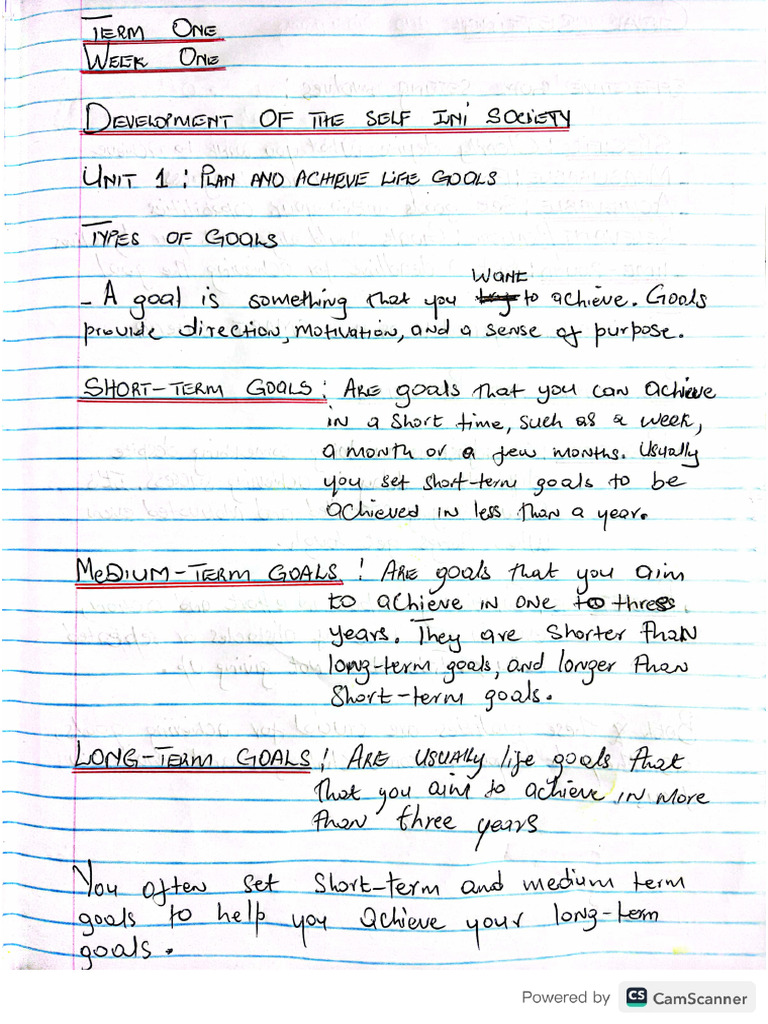 TERM ONE
WEEK ONE
DEVELOPMENT OF THE SELF INI SOCIETY
UNIT 1 : PLAN AND ACHIEVE LIFE GOALS
TYPES OF GOALS
WANT
- A goal is something that you try to achieve. Goals
provide direction, motivation, and a sense of purpose.
SHORT-TERM GOALS : ARE goals that you can achieve
in a short time, such as a week,
a month or a few months. Usually
you set short-term goals to be
achieved in less than a year.
MEDIUM-TERM GOALS : ARE goals that you aim
to achieve in one to three
years. They are shorter than
long-term goals, and longer than
short-term goals.
LONG-TERM GOALS : ARE usually life goals that
that you aim to achieve in more
than three years
You often set short-term and medium term
goals to help you achieve your long-term
goals.
Powered by CS CamScanner